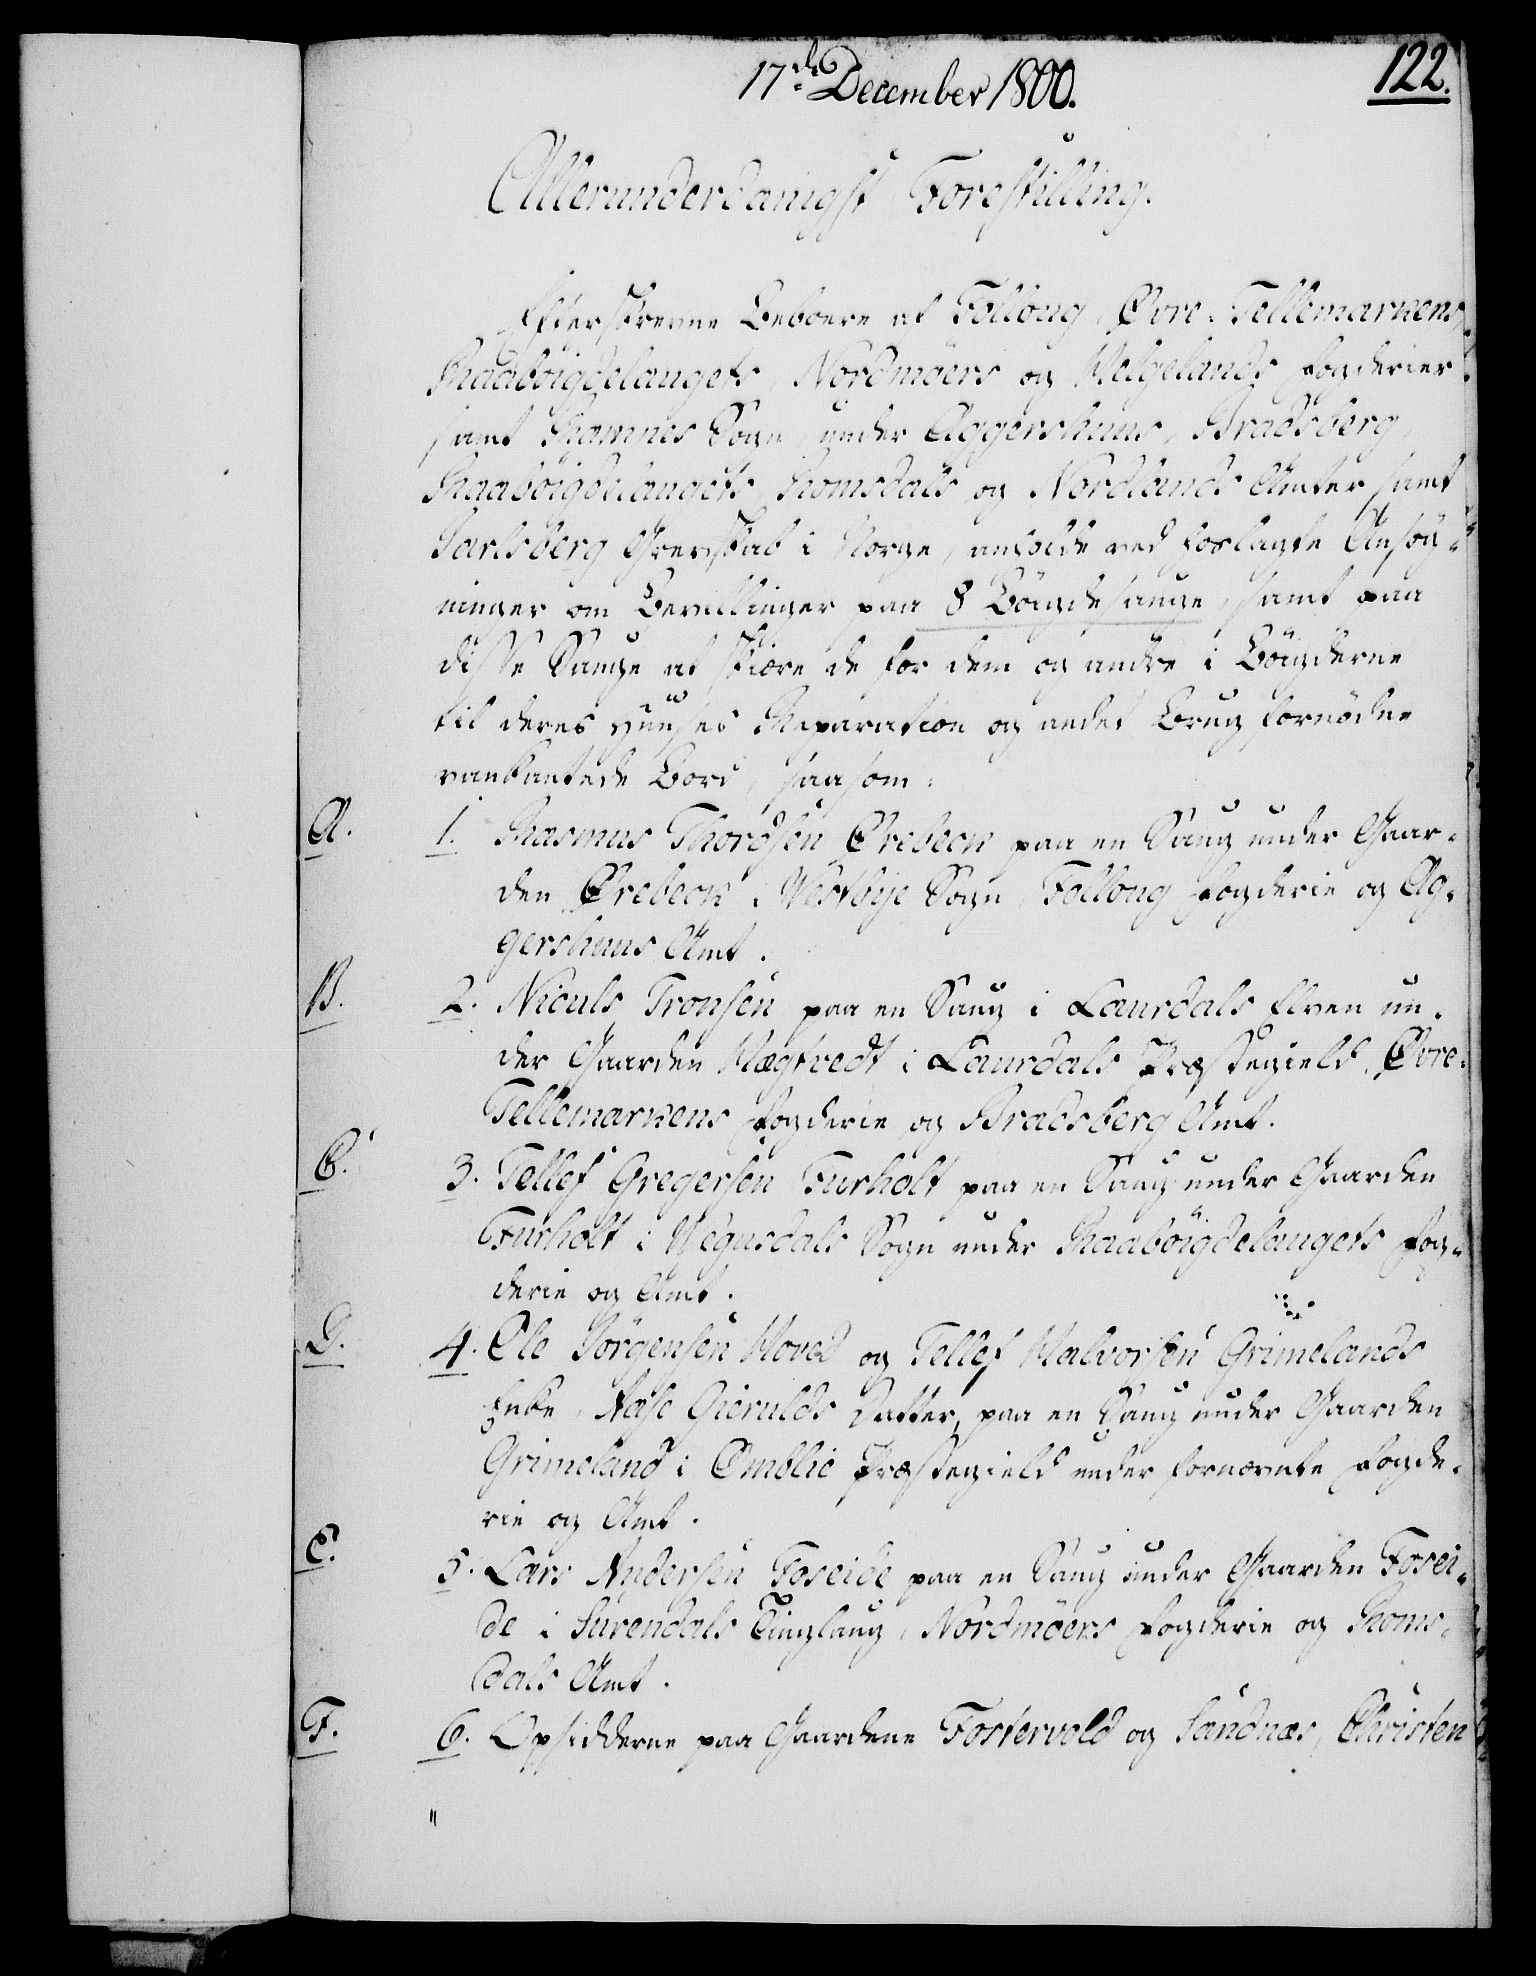 17de December 1800.
122.
Allerunderdanigst Forestilling.
Efterskrevne Beboere af Folloug, Øvre-Tellemarkens,
Raabøigdelaugets, Nordmøers og Helgelands Fogderier
samt Ramnes Sogn, under Aggershuus, Bradsberg,
Raabøigdelaugets, Romsdals og Nordlands Amter samt
Jarlsberg Grevskab i Norge, anholde ved hoslagte Ansøg-
ninger om Bevillinger paa 8 Bøigdesauge, samt paa
disse Sauge at skiære de for dem og andre i Bøigderne
til deres Huuses Reparation og andet Brug fornødne
vankantede Bord, saasom:
A. 1. Rasmus Thordsen Ørebeck paa en Saug under Gaar-
den Ørebeck i Westbye Sogn, Folloug Fogderie og Ag-
gershuus Amt.
B. 2. Niculs Tronsen paa en Saug i Laurdals Elven un-
der Gaarden Hægtvedt i Laurdals Præstegield, Øvre-
Tellemarkens Fogderie og Bradsberg Amt.
C. 3. Tellef Gregersen Furholt paa en Saug under Gaarden
Furholt i Wegusdals Sogn under Raabøigdelaugets Fog-
derie og Amt.
D. 4. Ole Jørgensen Hoved og Tellef Halvorsen Grimelands
Enke, Aase Gierulds Datter, paa en Saug under Gaarden
Grimeland i Omblie Præstegield under fornævnte Fogde-
rie og Amt.
E. 5. Lars Andersen Foseide paa en Saug under Gaarden Fosei-
de i Surendals Tinglaug, Nordmøers Fogderie og Roms-
dals Amt.
F. 6. Opsidderne paa Gaardene Fostervold og Sandnæs, Christen
"